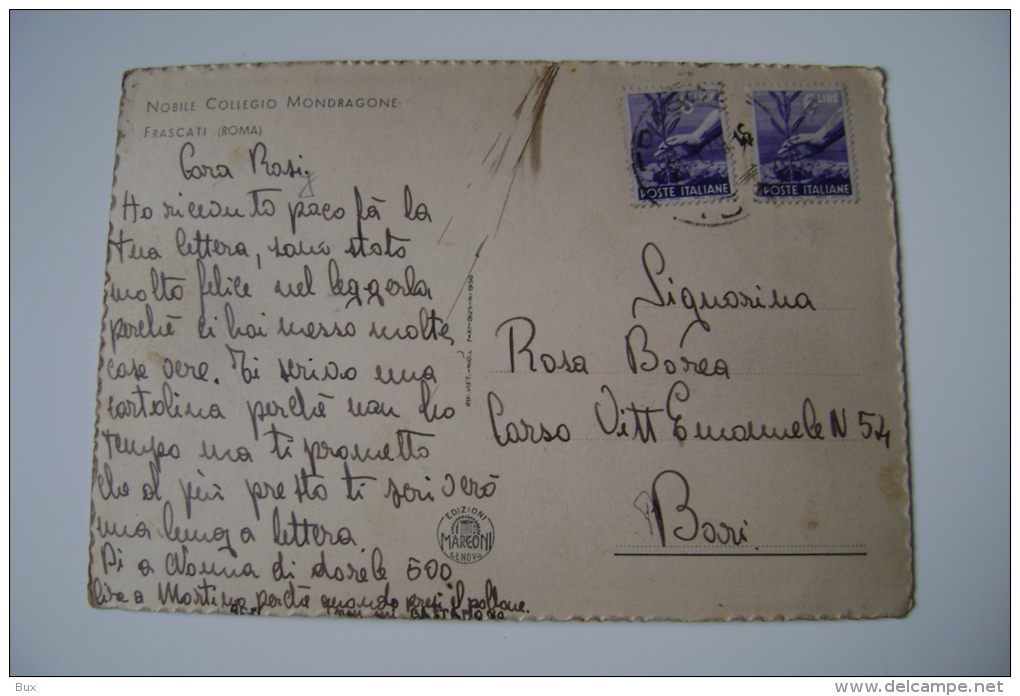 NOBILE COLLEGIO MONDRAGONE
FRASCATI (ROMA)
Cara Rosi,
Ho ricevuto poco fà la
tua lettera, sono stato
molto felice nel leggerla
perchè ci hai messo molte
cose vere. Ti scrivo una
cartolina perchè non ho
tempo ma ti prometto
che al più presto ti scriverò
una lunga lettera.
Di a Nonna di darele 500
lire a Martino perchè quando presi il pallone
non mi BASTARONO
EDIZIONI
MARCONI
GENOVA
POSTE ITALIANE
LIRE
POSTE ITALIANE
Signorina
Rosa Borea
Corso Vitt Emanuele N 54
Bari
Bux
www.delcampe.net